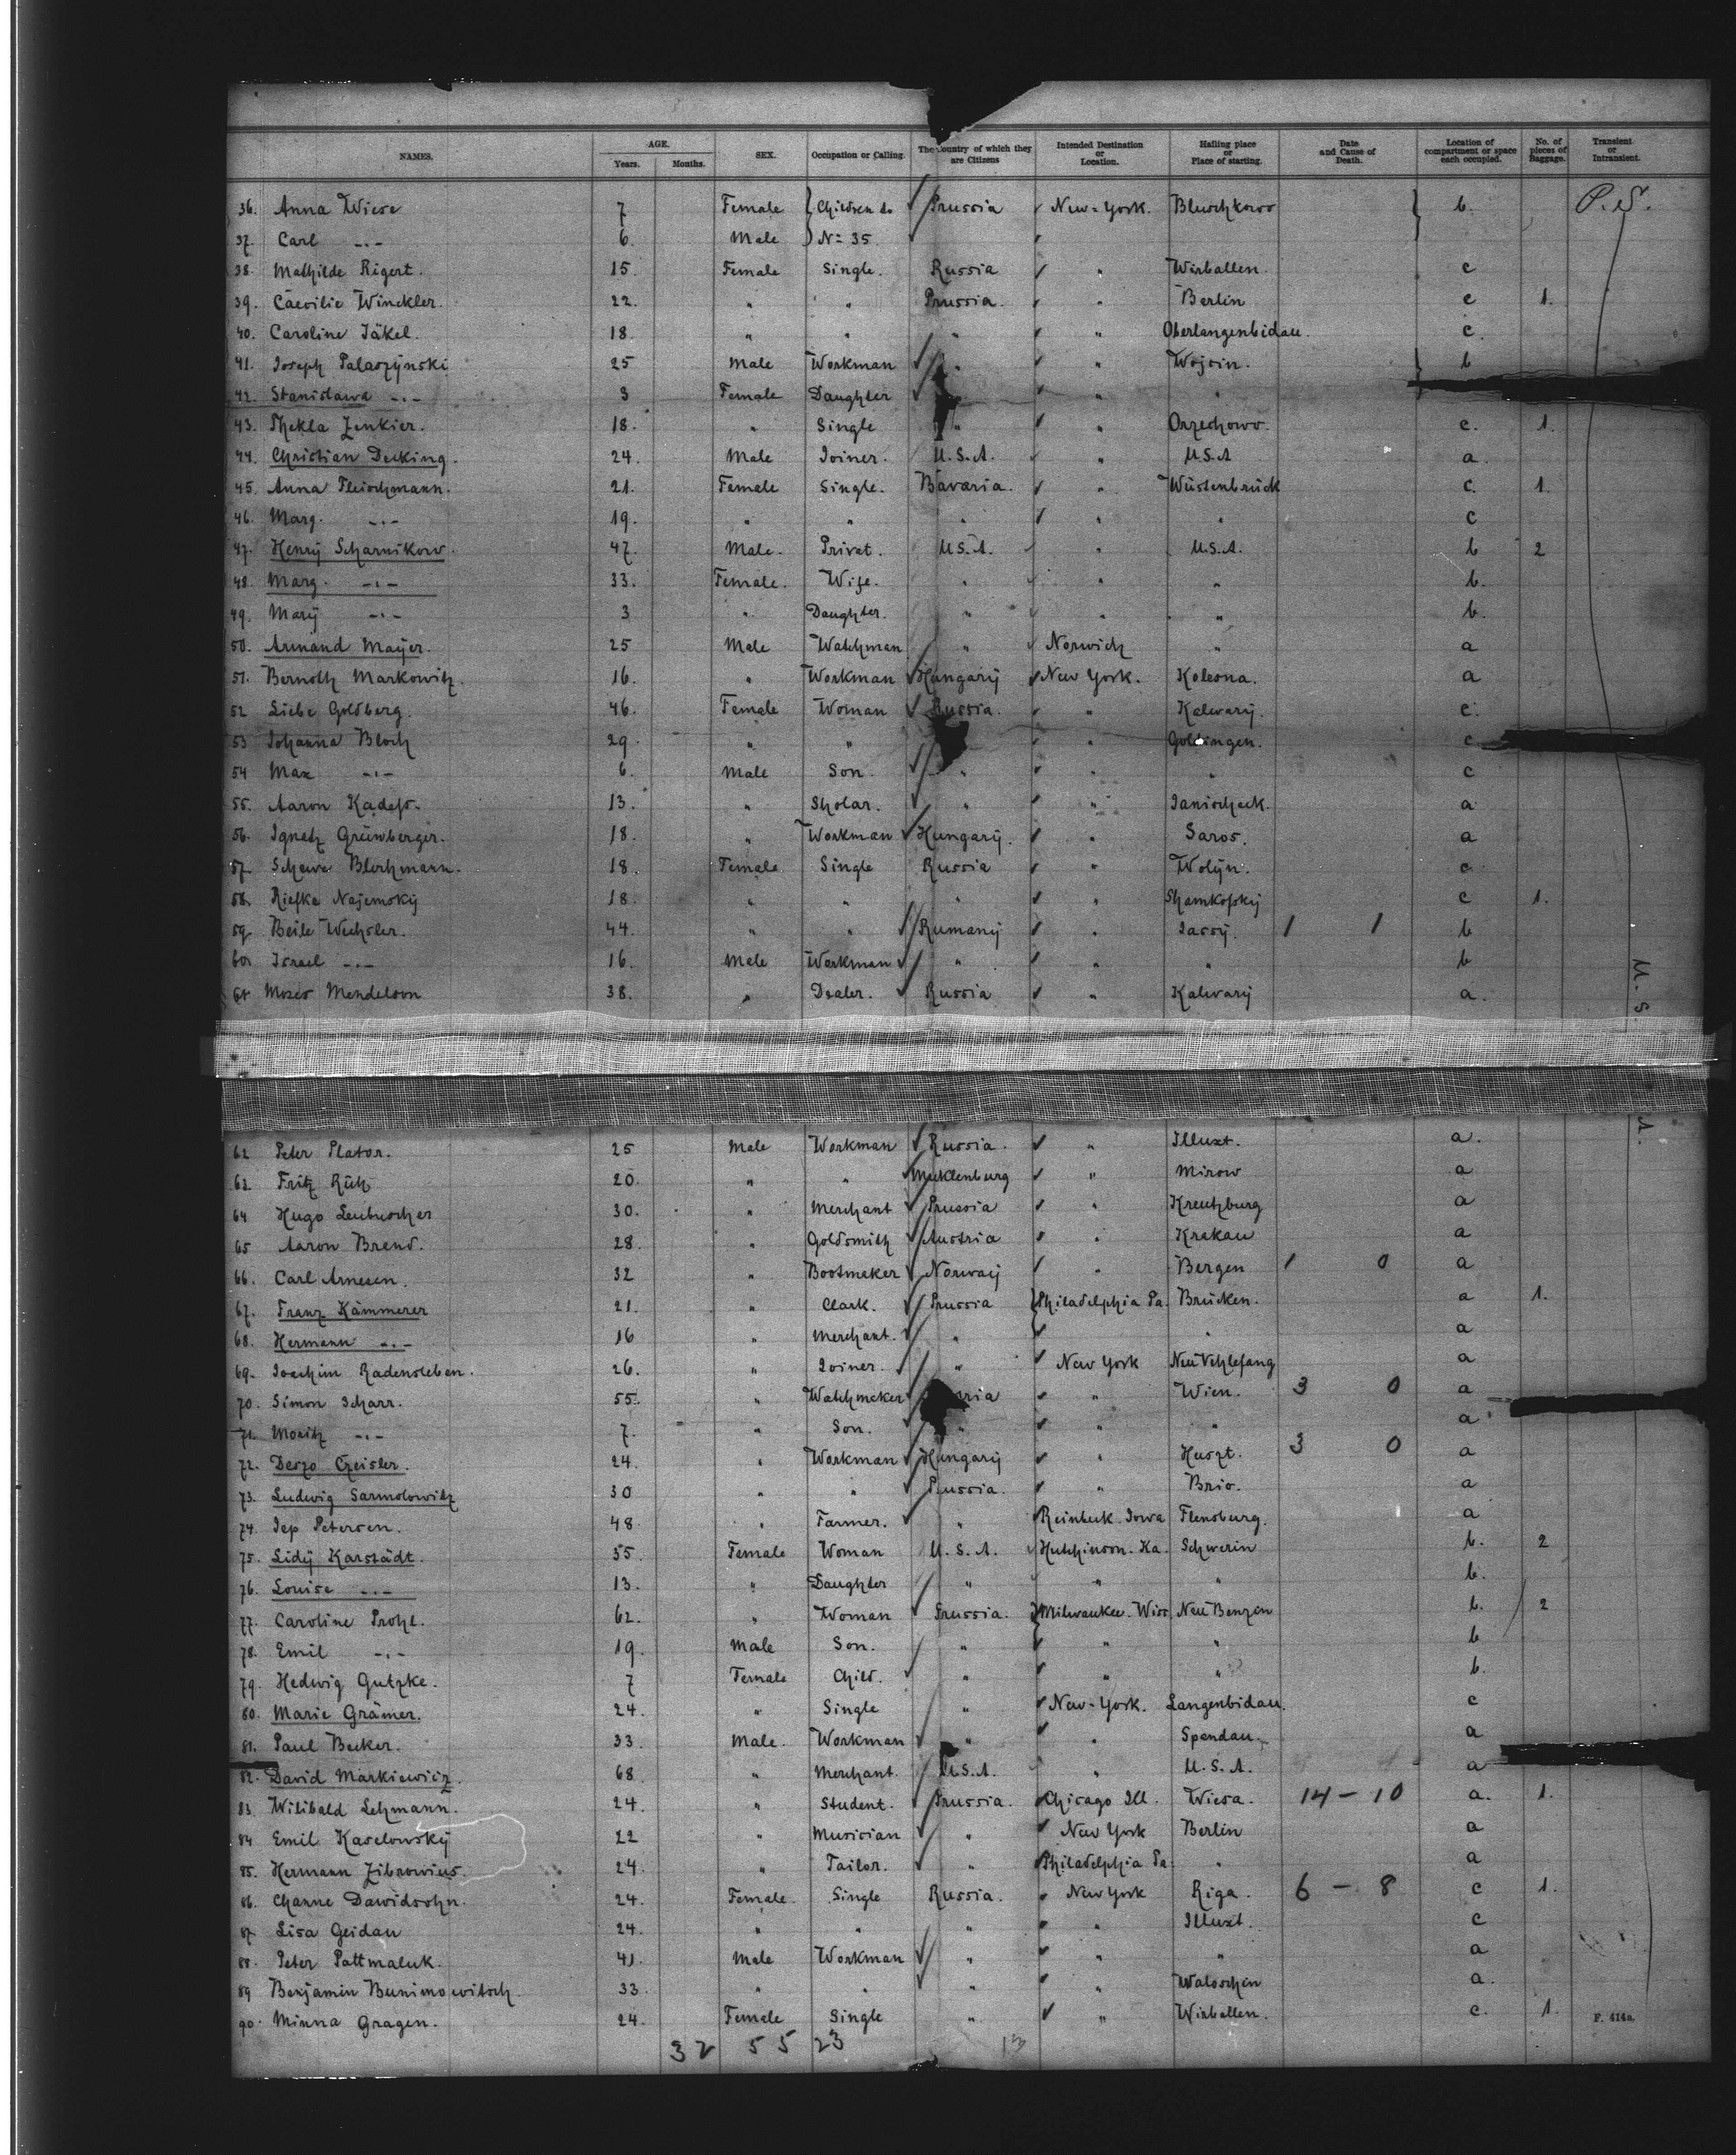 NAMES. AGE. Years. Months. SEX. Occupation or Calling. The Country of which they are Citizens Intended Destination or Location. Hailing place or Place of starting. Date and Cause of Death. Location of compartment or space each occupied. No. of pieces of Baggage. Transient or Intransient.
36. Anna Wiese 7 Female Children to Prussia New-York. b. P. S.
37. Carl -"- 6. Male No 35
38. Mathilde Rigert. 15. Female Single. Russia " Wirballen. c
39. Caecilie Winckler. 22. " " Prussia. " Berlin c 1.
40. Caroline Jäkel. 18. " " " " Oberlangenbidau. c
41. Joseph Palaszynski 25 Male Workman " " Wojcin. b
42. Stanislawa -"- 3 Female Daughter " "
43. Thekla Zenkier. 18. " Single " " Orzechowo. c. 1.
44. Christian Decking. 24. Male Joiner. U.S.A. " U.S.A a
45. Anna Fleischmann. 21. Female Single. Bavaria. " Wüstenbrück c. 1.
46. Marg. -"- 19. " " " " " c
47. Henry Scharnikow. 47. Male. Privat. U.S.A. " U.S.A. b 2
48. Marg. -"- 33. Female. Wife. " " " b.
49. Mary -"- 3 " Daughter. " " " b.
50. Armand Mayer. 25 Male Watchman " Norwich " a
51. Bernoth Markowitz. 16. " Workman Hungary New York. Kolesna. a
52 Liebe Goldberg. 46. Female Woman Russia. " Kalwary. c.
53 Johanna Bloch 29. " " " Goldingen. c
54 Max -"- 6. Male Son. " " " c
55. Aaron Kadess. 13. " Sholar. " " Janischeck. a
56. Ignatz Grünberger. 18. " Workman Hungary. " Saros. a
57. Blochmann. 18. Female Single Russia " Wolyn. c
58. Riefka Najemsky 18. " " " " c 1.
59. Beile Wechsler. 44. " " Rumany " Jassy. 1 1 b
60. Israel -"- 16. Male Workman " " " b
61. Moses Mendelson 38. " Dealer. Russia " Kalwary a.
U. S. A.
62 Peter Plator. 25 Male Workman Russia. " Illuxt. a.
63 Fritz Rüh 20. " " Mecklenburg " Mirow a
64 Hugo Leubuscher 30. " Merchant Prussia " Kreutzburg a
65 Aaron Brend. 28. " Goldsmith Austria " Krakau a
66. Carl Arnesen. 32 " Bootmaker Norway " Bergen 1 0 a
67. Franz Kämmerer 21. " Clark. Prussia Philadelphia Pa. Brücken. a 1.
68. Hermann -"- 16 " Merchant. " " a
69. Joachim Radensleben. 26. " Joiner. " New York Neu Vehlefang a
70. Simon Scharr. 55. " Watchmaker " Wien. 3 0 a
71. Moritz -"- 7. " Son. " " " a
72. Deszo Czeisler. 24. " Workman Hungary " Huszt. 3 0 a
73. Ludwig Sarmolowitz 30 " " Prussia. " a
74. Jep Petersen. 48. " Farmer. " Reinbeck Iowa Flensburg. a
75. Lidy Karstädt. 55. Female Woman U.S.A. Hutchinson. Ka. Schwerin b. 2
76. Louise -"- 13. " Daughter " " " b.
77. Caroline Prohl. 62. " Woman Prussia. Milwaukee. Wisc. Neu Benzin b. 2
78. Emil -"- 19. Male Son. " " " b
79. Hedwig Gutzke. 7 Female Child. " " " b.
80. Marie Grämer. 24. " Single " New-York. Langenbidau. c
81. Paul Becker. 33. Male. Workman " " Spandau. a
82. David Markiewicz. 68 " Merchant. U.S.A. " U.S.A. a
83. Wilibald Lehmann. 24. " Student. Prussia. Chicago Ill. Wiesa. 14 - 10 a. 1.
84 Emil Kaselowsky 22 " Musician " New York Berlin a
85. Hermann Zibrowius. 24. " Tailor. " Philadelphia Pa. " a
86. Channe Dawidsohn. 24. Female. Single Russia. New York Riga. 6 - 8 c 1.
87 Lisa Geidan 24. " " " " Illuxt. c
88. Peter Pattmaluk. 41. Male Workman " " " a
89 Benjamin Bunimowitsch. 33. " " " " Waloschin a.
90. Minna Gragen. 24. Female Single " " Wirballen. c. 1. F. 414a.
32 55 23 13